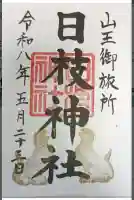 山王御旅所
日枝神社
令和八年五月二十三日